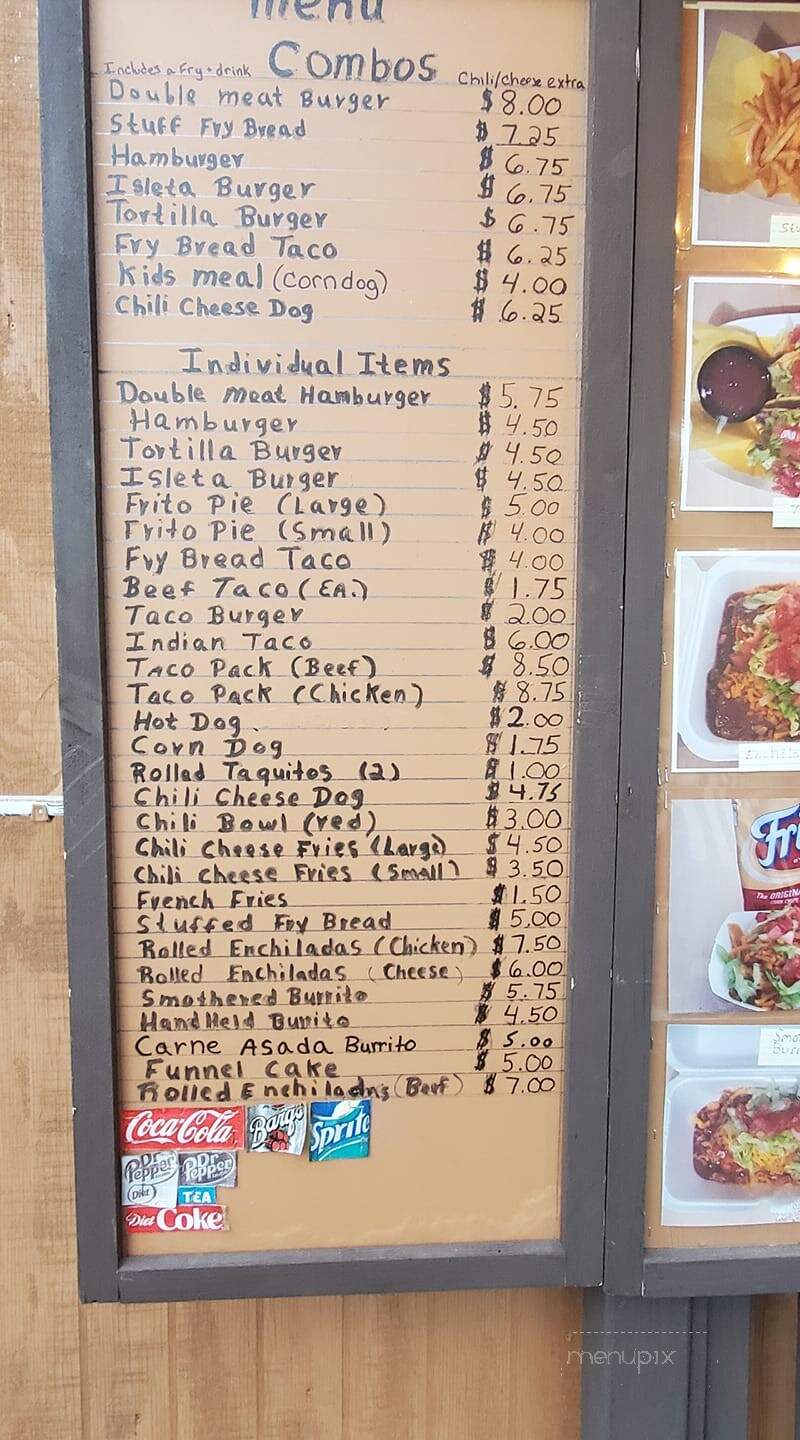 Menu
Includes a Fry + drink Combos Chili/cheese extra
Double meat Burger $ 8.00
Stuff Fry Bread $ 7.25
Hamburger $ 6.75
Isleta Burger $ 6.75
Tortilla Burger $ 6.75
Fry Bread Taco $ 6.25
Kids meal (Corndog) $ 4.00
Chili Cheese Dog $ 6.25
Individual Items
Double meat Hamburger $ 5.75
Hamburger $ 4.50
Tortilla Burger $ 4.50
Isleta Burger $ 4.50
Frito Pie (Large) $ 5.00
Frito Pie (Small) $ 4.00
Fry Bread Taco $ 4.00
Beef Taco (EA.) $ 1.75
Taco Burger $ 2.00
Indian Taco $ 6.00
Taco Pack (Beef) $ 8.50
Taco Pack (Chicken) $ 8.75
Hot Dog $ 2.00
Corn Dog $ 1.75
Rolled Taquitos (2) $ 1.00
Chili Cheese Dog $ 4.75
Chili Bowl (red) $ 3.00
Chili Cheese Fries (Large) $ 4.50
Chili Cheese Fries (Small) $ 3.50
French Fries $ 1.50
Stuffed Fry Bread $ 5.00
Rolled Enchiladas (Chicken) $ 7.50
Rolled Enchiladas (Cheese) $ 6.00
Smothered Burrito $ 5.75
Hand Held Burrito $ 4.50
Carne Asada Burrito $ 5.00
Funnel Cake $ 5.00
Rolled Enchiladas (Beef) $ 7.00
Coca-Cola Barq's Sprite
Dr Pepper Diet Dr Pepper
TEA
Diet Coke
Fri
The ORIGINA
menupix